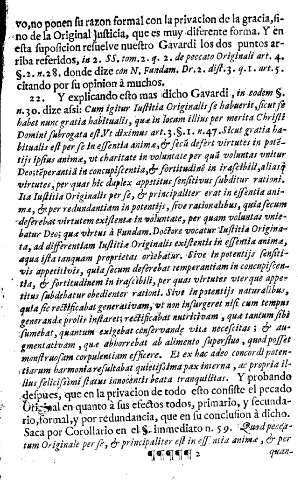 vo, no ponen su razon formal con la privacion de la gracia, si-
no de la Original Justicia, que es muy diferente forma. Y en
esta suposicion resuelve nuestro Gavardi los dos puntos ar-
riba referidos, in 2. SS. tom. 2. q. 2. de peccato Originali art. 4.
§. 2. n. 28. donde dize con N. Fundam. Dr. 2. dist. 3. q. 1. art. 5.
citando por su opinion à muchos.
22. Y explicando esto mas dicho Gavardi, in eodem §.
n. 30. dize assi: Cum igitur Iustitia Originalis se habuerit, sicut se
habet nunc gratia habitualis, quæ in locum illius per merita Christi
Domini subrogata est. Vt diximus art. 3. §. 1. n. 47. Sicut gratia ha-
bitualis est per se in essentia animæ, & secũ defert virtutes in potẽ-
tijs ipsius animæ, vt charitate in voluntate per quã voluntas vnitur
Deo; tẽperantiã in concupiscẽtia, & fortitudinẽ in irascibili, aliasq;
virtutes, per quas hic duplex appetitus sensitivus subditur rationi.
Ita Iustitia Originalis per se, & principaliter erat in essentia ani-
mæ, & per redundantiam in potentijs, sive rationalibus, quia secum
deferebat virtutem existente in voluntate, per quam voluntas vnie-
batur Deo; quæ virtus à Fundam. Doctore vocatur Iustitia Origina-
ta, ad differentiam Iustitiæ Originalis existentis in essentia anima,
a qua ista tanquam proprietas oriebatur. Sive in potentijs sensiti-
vis appetitivis, quia secum deferebat temperantiam in concupiscen-
tia, & fortitudinem in irascibili, per quas virtutes vterque appe-
titus subdebatur obedienter rationi. Sive in potentijs naturalibus,
quia sic rectificabat generativam, vt non insurgeret nisi cum tempus
generandæ prolis instaret; rectificabat nutritivam, qua tantum sibi
sumebat, quantum exigebat conservandæ vita necesitas; & au-
gmentativam, quæ abhorrebat ab alimento superfluo, quod posset
monstruosam corpulentiam efficere. Et ex hac adeo concordi poten-
tiarum harmonia resultabat quietissima pax interna, ac propria il-
lius felicissimi status innocentis beata tranquilitas. Y probando
despues, que en la privacion de todo esto consiste el pecado
Original en quanto à sus efectos todos, primario, y secunda-
rio, formal, y por redundancia, que en su conclusion à dicho.
Saca por Corollario en el §. immediato n. 59. Quod pecca-
tum Originale per se, & principaliter est in essentia animæ, & per
¶¶¶¶¶ 2 quan-